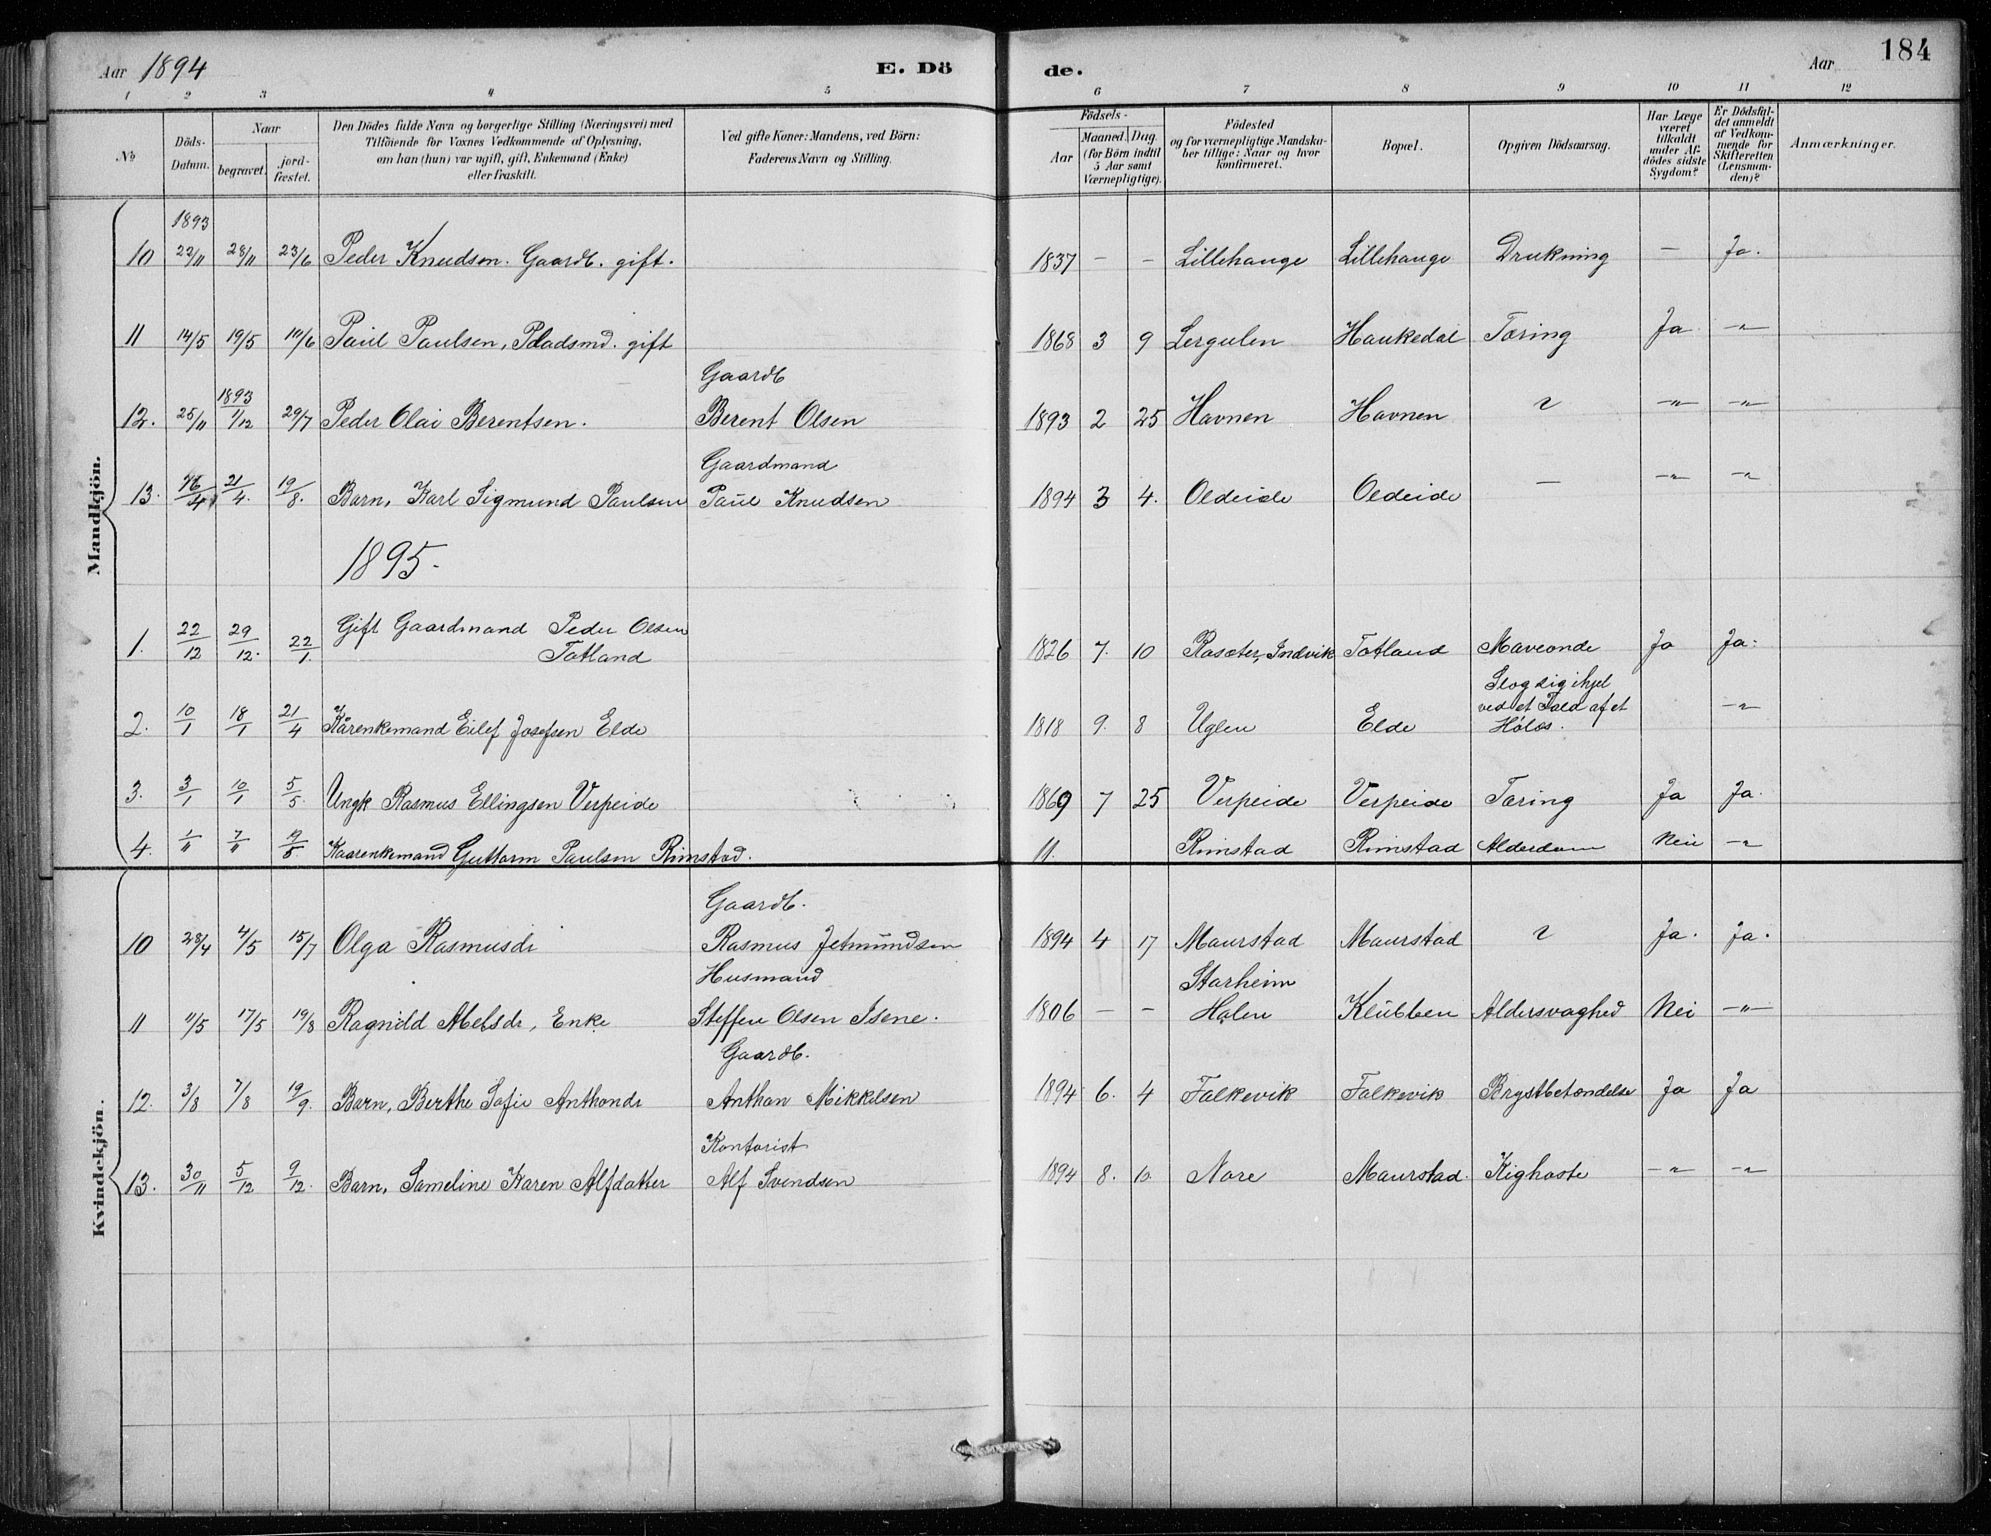 Aar 1894
E. Dö
de.
Aar
184
1 2 3 4 5 6 7 8 9 10 11 12
No
Döds-Datum.
Naar
begravet.
jord-fæstet.
Den Dödes fulde Navn og borgerlige Stilling (Næringsvei) med
Tilföiende for Voxnes Vedkommende af Oplysning,
om han (hun) var ugift, gift, Enkemand (Enke)
eller fraskilt.
Ved gifte Koner: Mandens, ved Börn:
Faderens Navn og Stilling.
Födsels-
Aar
Maaned. Dag.
(for Börn indtil
5 Aar samt
Værnepligtige).
Födested
og for værnepligtige Mandska-
ber tillige: Naar og hvor
konfirmeret.
Bopæl.
Opgiven Dödsaarsag.
Har Læge
været
tilkaldt
under Af-
dödes sidste
Sygdom?
Er Dödsfal-
det anmeldt
af Vedkom-
mende for
Skifteretten
(Lensman-
den)?
Anmærkninger.
Mandkjön.
1893
10 22/11 28/11 23/6 Peder Knudsen. Gaardb. gift. 1837 — — Lillehauge Lillehauge Drukning — Ja.
11 14/5 19/5 10/6 Paul Paulsen, Pladsmd. gift 1868 3 9 Lergulen Haukedal Tæring Ja —"—
Gaardb
1893
12. 25/11 1/12 29/7 Peder Olai Berentsen. Berent Olsen 1893 2 25 Havnen Havnen ? —"— —"—
Gaardmand
13. 16/4 21/4. 19/8. Barn, Karl Sigmund Paulsen Paul Knudsen 1894 3 4. Oldeide Oldeide — —"— —"—
1895.
1. 22/12 29/12. 22/1. Gift Gaardmand Peder Olsen
Totland 1826 7. 10 Rasæter, Indvik Totland Maveonde Ja Ja.
Slog sig ihjel
ved et Fald af et
2. 10/1 18/1 21/4 Kårenkemand Eilef Josefsen Elde 1818 9. 8 Uglen Elde Hølæs. —"—
3. 3/1 10/1 5/5. Ungk Rasmus Ellingsen Verpeide 1869 7 25 Verpeide Verpeide Tæring Ja Ja.
4. 1/11 7/11 Kaarenkemand Guttorm Paulsen Rimstad. 11. Rimstad Rimstad Alderdom Nei —"—
Kvindekjön.
Gaardb.
10 28/4 4/5 15/7 Olga Rasmusdr Rasmus Jetmundsen 1894 4 17 Maurstad Maurstad ? Ja. Ja.
Husmand Starheim
11 11/5 17/5 19/8 Ragnild Abelsdr, Enke Steffen Olsen Isene. 1806 — — Halen Klubben Aldersvaghed Nei —"—
Gaardb.
12. 3/8 7/8 19/9. Barn, Berthe Sofie Anthondr Anthon Mikkelsen 1894 6. 4 Falkevik Falkevik Brystbetændelse Ja Ja
Kontorist
13. 30/11 5/12 9/12. Barn, Sameline Karen Alfdatter Alf Svendsen 1894 8. 10. Nore Maurstad. Kighoste —"— —"—